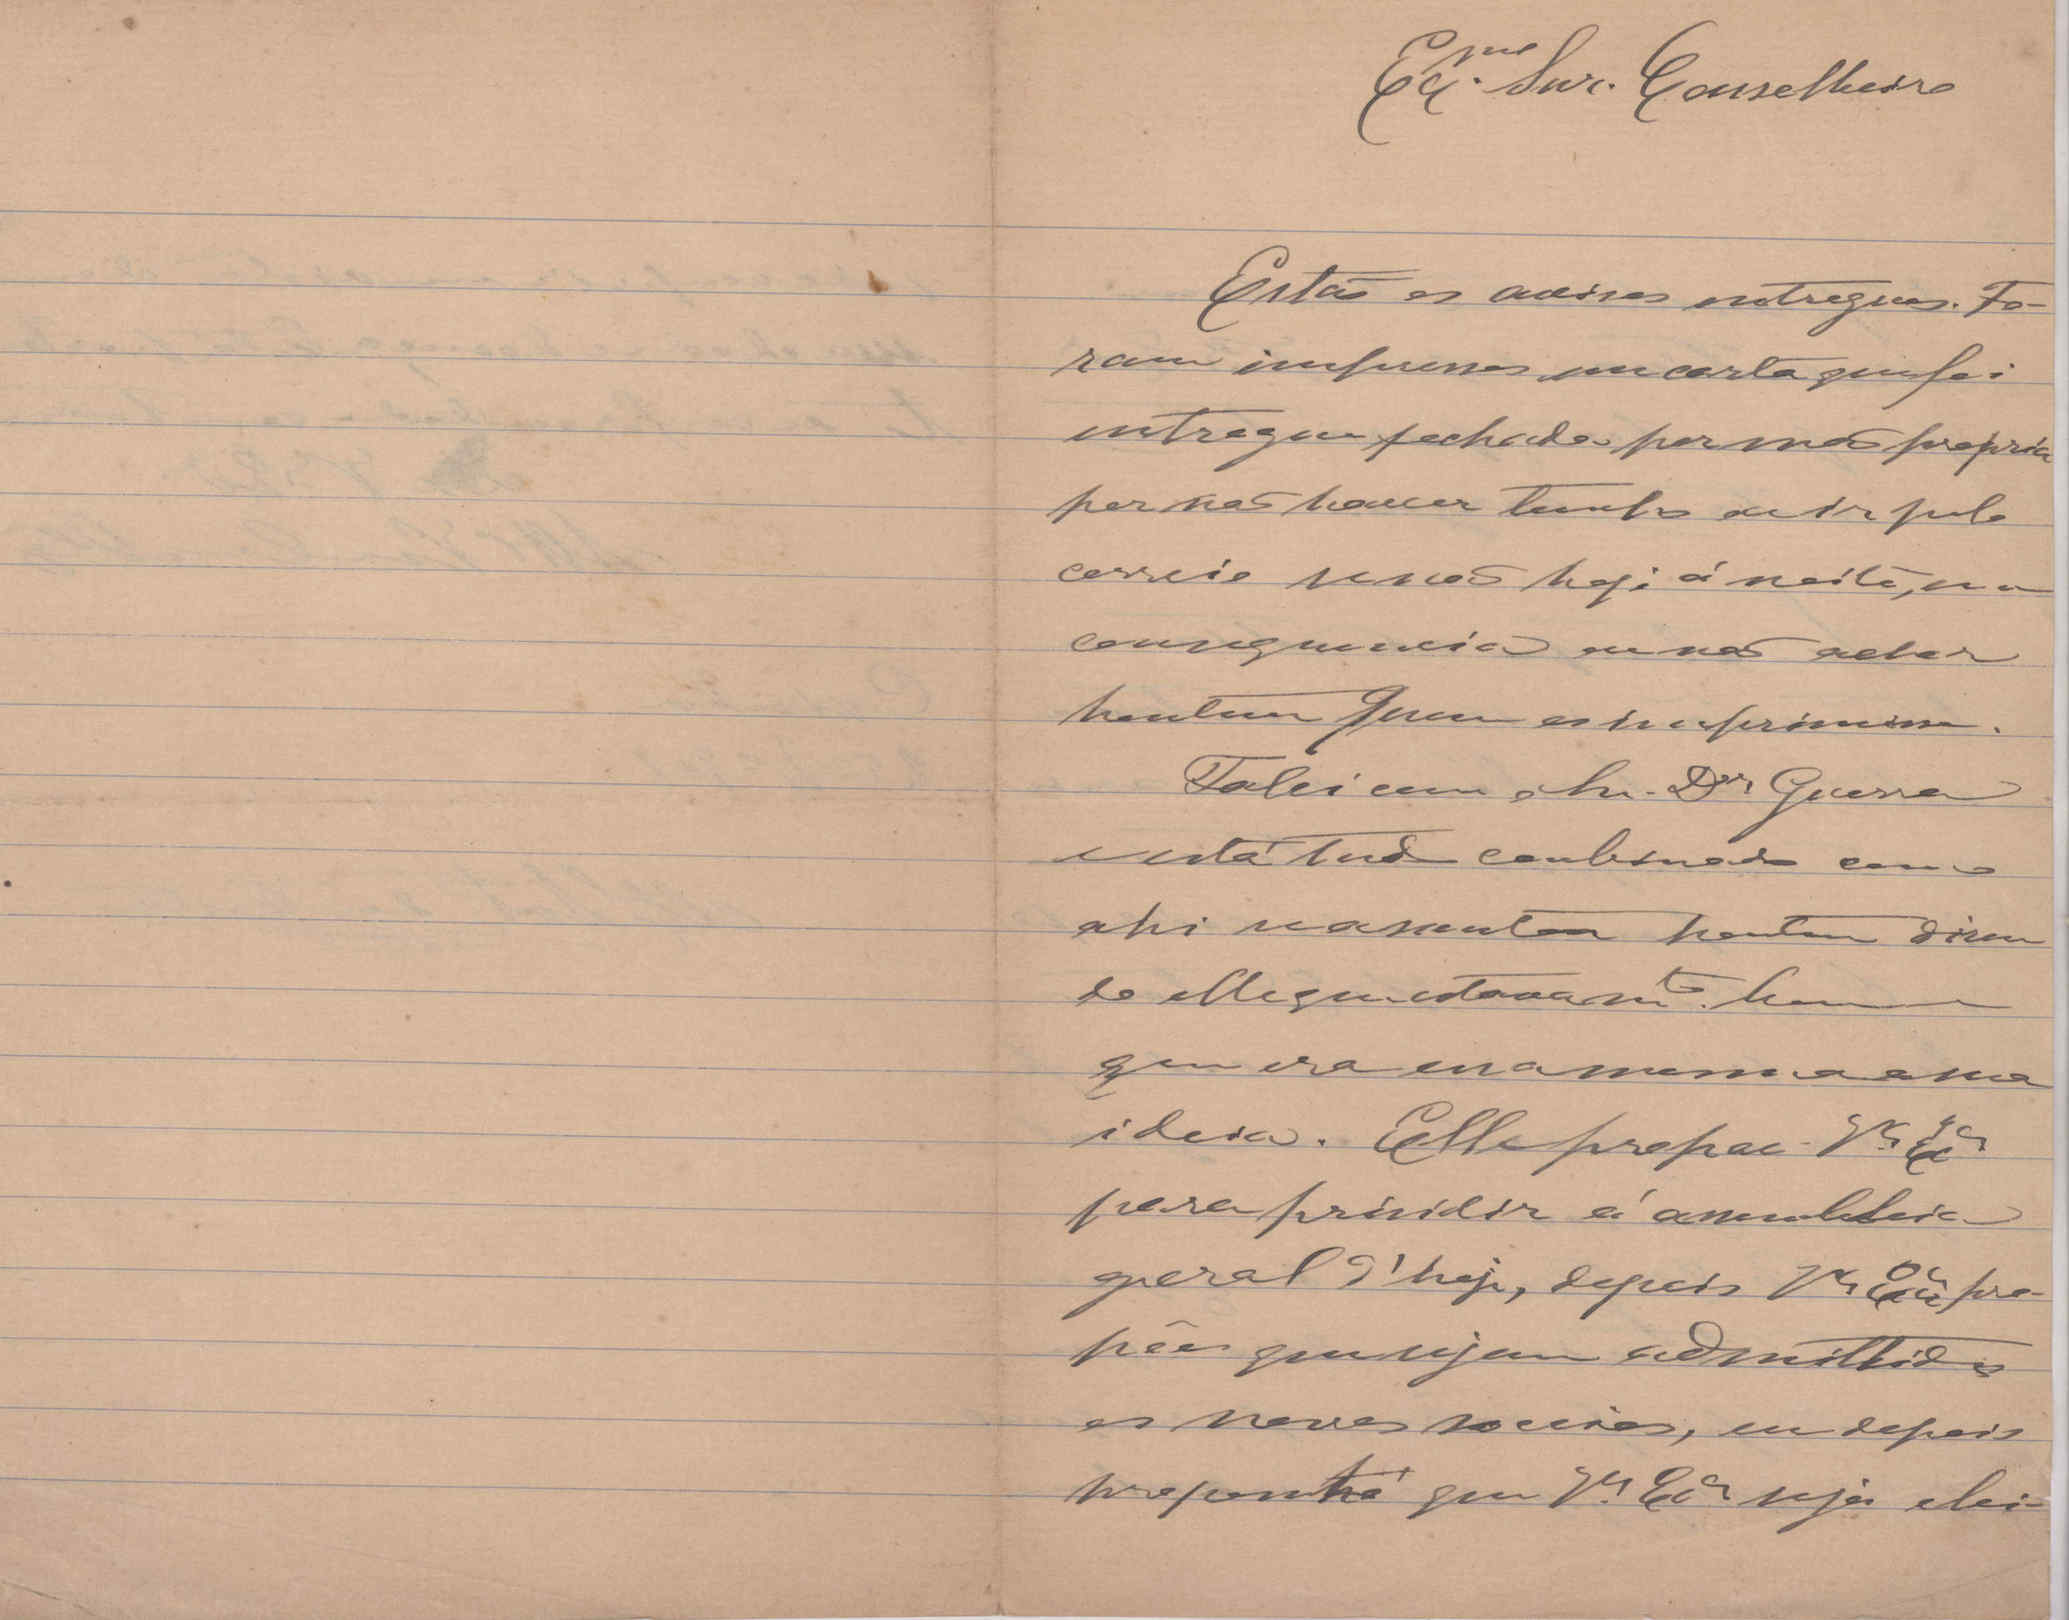 Ex.mo Snr. Conselheiro
Estão os avisos entregues. Fo-
ram impressos em carta que foi
entregue fechada por mão propria
por não haver tempo de ir pelo
correio senão hoje á noite, em
consequencia de não achar
hontem quem os imprimisse.
Falei com o Snr. Dor Guerra
e está tudo combinado como
ahi se assentou hontem dizen
do elle que estava mto. bem e
que era essa mesma a sua
ideia. Elle propoe V. Exa
para presidir á assembleia
geral d'hoje, depois V. Exa pro-
põe que sejam admittidos
os novos socios, eu depois
proponho que V. Exa seja elei-